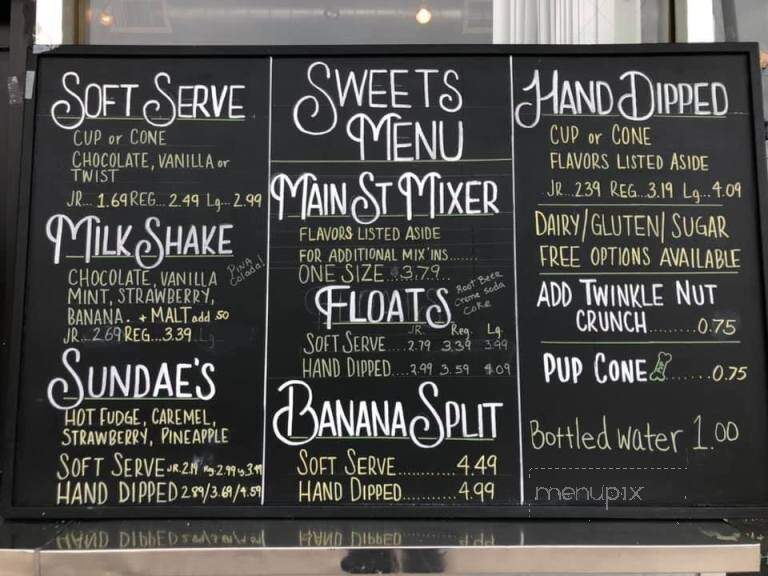 SOFT SERVE
CUP or CONE
CHOCOLATE, VANILLA or
TWIST
JR... 1.69 REG... 2.49 Lg... 2.99
MILK SHAKE
PINA
Colada!
CHOCOLATE, VANILLA
MINT, STRAWBERRY,
BANANA. + MALT add 50
JR...2.69 REG...3.39 Lg
SUNDAE'S
HOT FUDGE, CAREMEL,
STRAWBERRY, PINEAPPLE
SOFT SERVE JR. 2.19 Rg. 2.99 Lg. 3.99
HAND DIPPED 2.89/3.69/4.59
SWEETS
MENU
MAIN ST MIXER
FLAVORS LISTED ASIDE
FOR ADDITIONAL MIX'INS.......
ONE SIZE $3.79...
FLOATS
Root Beer
Creme soda
COKE
JR. Reg. Lg.
SOFT SERVE....2.79 3.39 3.99
HAND DIPPED....2.99 3.59 4.09
BANANA SPLIT
SOFT SERVE...........4.49
HAND DIPPED..........4.99
HAND DIPPED
CUP or CONE
FLAVORS LISTED ASIDE
JR...2.39 REG...3.19 Lg...4.09
DAIRY/GLUTEN/SUGAR
FREE OPTIONS AVAILABLE
ADD TWINKLE NUT
CRUNCH.........0.75
PUP CONE.......0.75
Bottled water 1.00
menupix